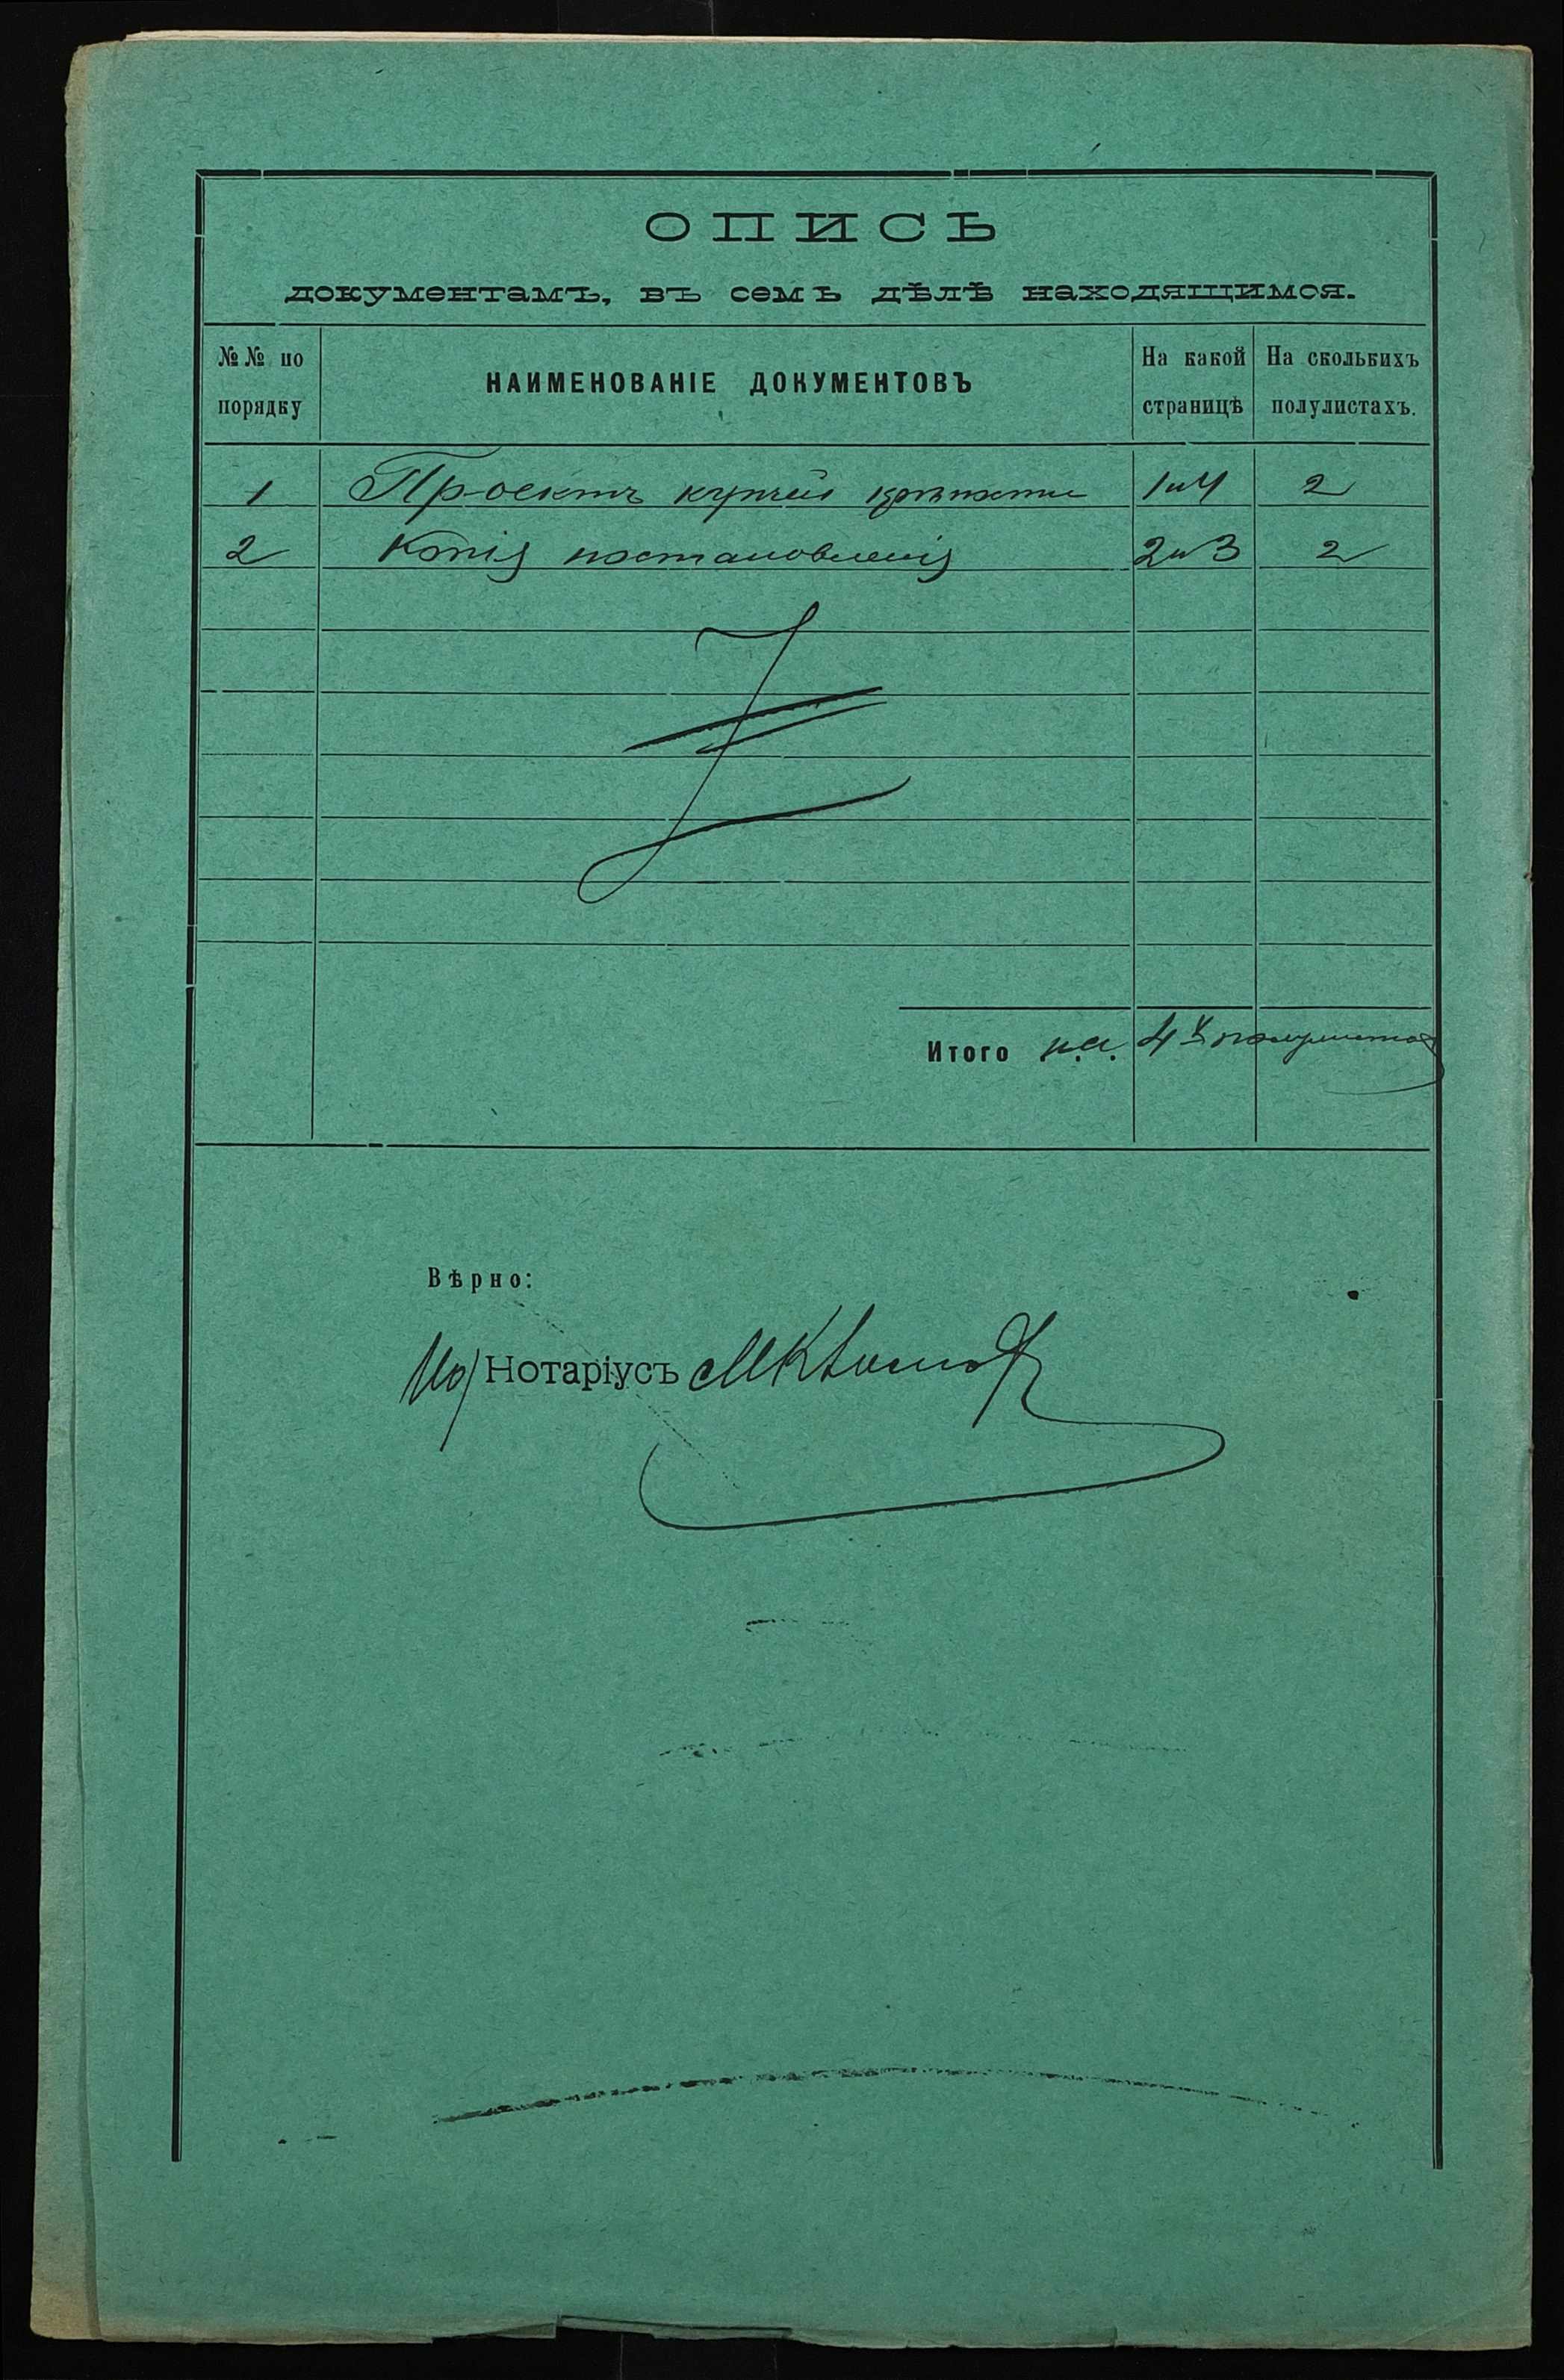 ОПИСЬ
документамъ, въ семъ дѣлѣ находящимся.
№№ по порядку
НАИМЕНОВАНІЕ ДОКУМЕНТОВЪ
На какой страницѣ
На сколькихъ полулистахъ.
1 Проектъ купчей крѣпости 1 и 4 2
2 Копія постановленія 2 и 3 2
Итого на 4х полулистах
Вѣрно:
Ио/ Нотаріусъ